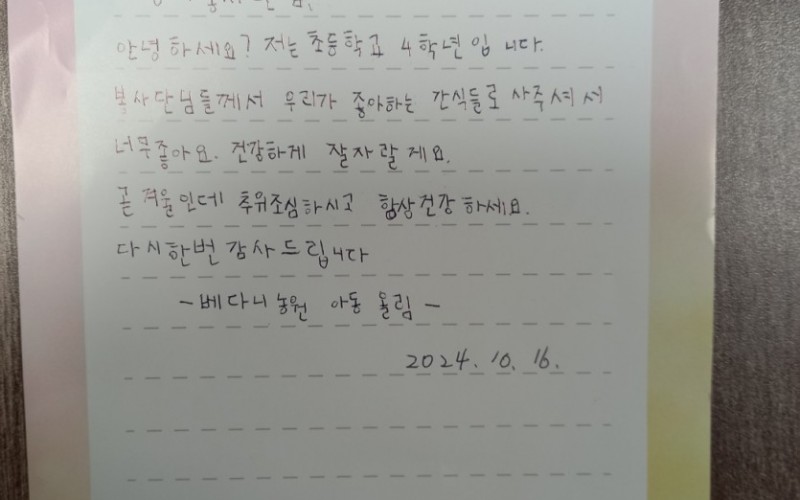 안녕하세요? 저는 초등학교 4학년입니다.
봉사단님들께서 우리가 좋아하는 간식들로 사주셔서
너무좋아요. 건강하게 잘자랄게요.
곧 겨울인데 추위조심하시고 항상건강하세요.
다시한번감사드립니다
-베다니농원 아동 올림-
2024. 10. 16.